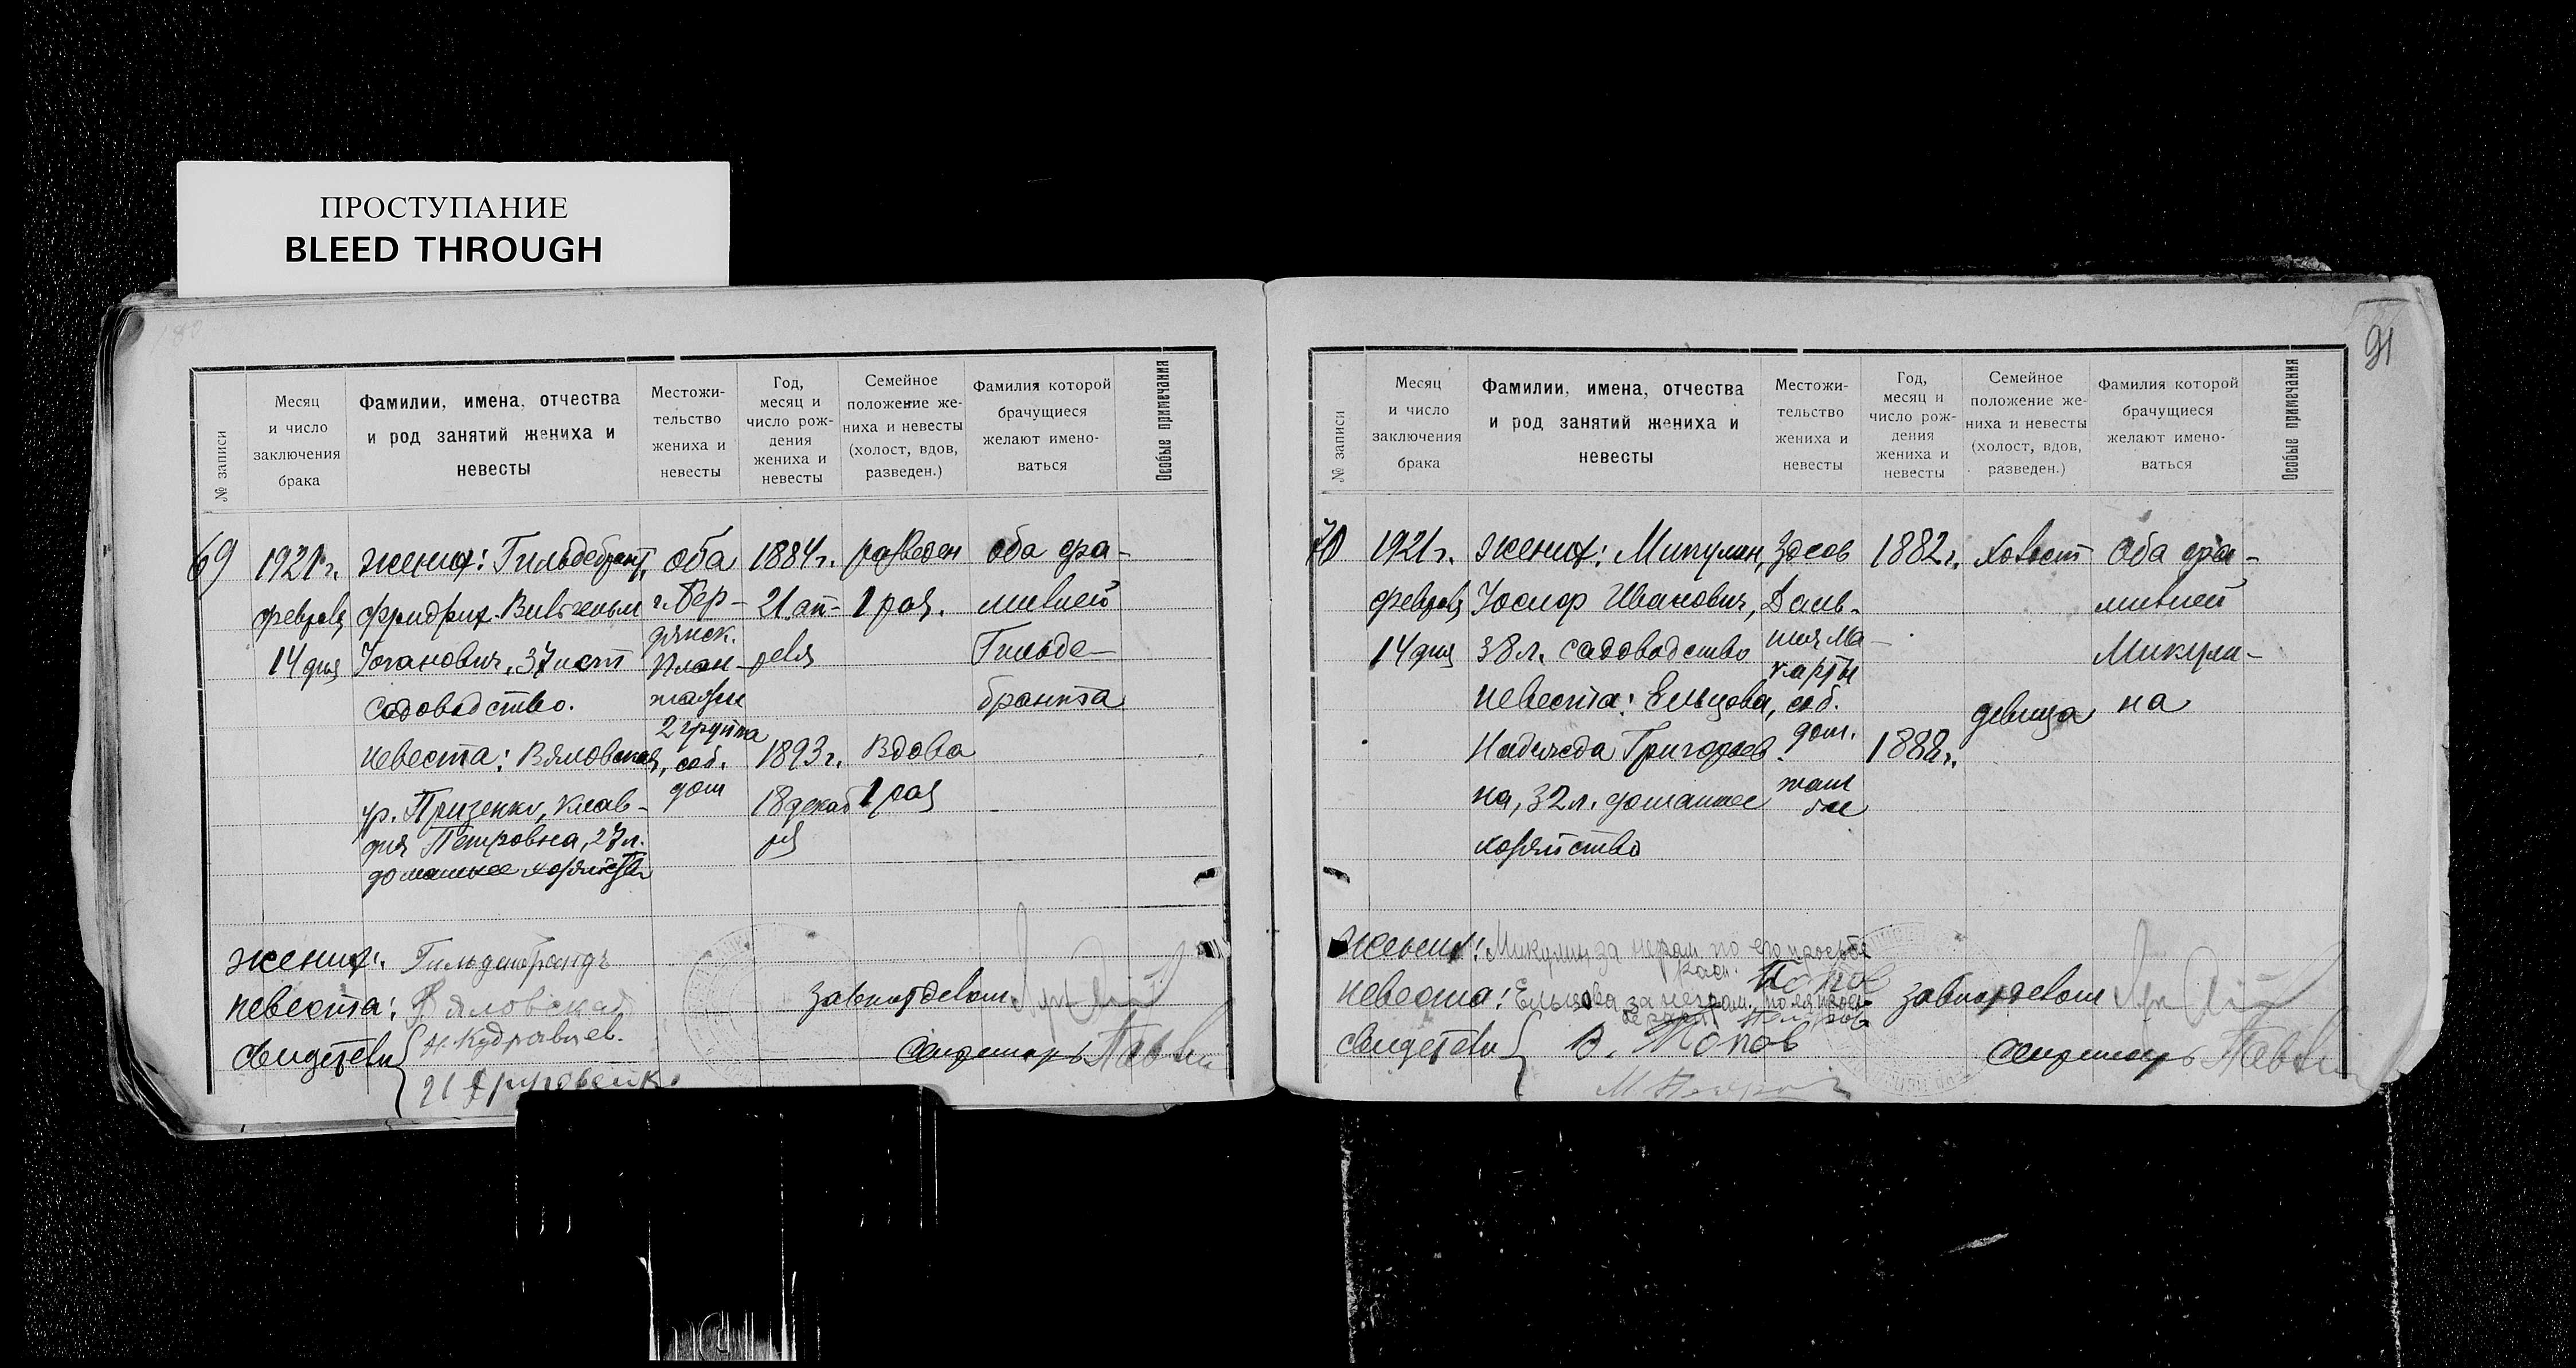 ПРОСТУПАНИЕ
BLEED THROUGH
91
№ записи
Месяц
и число
заключения
брака
Фамилии, имена, отчества
и род занятий жениха и
невесты
Местожи-
тельство
жениха и
невесты
Год,
месяц и
число рож-
дения
жениха и
невесты
Семейное
положение же-
ниха и невесты
(холост, вдов,
разведен.)
Фамилия которой
брачущиеся
желают имено-
ваться
Особые примечания
69
1921 г.
февраля
14 дня
жених: Гильдебрант,
Фридрих-Вильгельм
Иоганович, 37 лет
садоводство.
невеста: Вяловская,
ур. Приземко, Клав-
дия Петровна, 27 л.
домашнее хозяйство
оба
г. Бер-
дянск.
План-
тазии
2 группа
соб.
дом
1884 г.
21 ап-
реля
1893 г.
18 декаб
ря
разведен
1 раз.
Вдова
1 раз
оба фа-
милией
Гильде-
бранта
жених: Гильденбрандъ
невеста: Вяловская
свидетели
Н. Кудрявцев.
завподотделом
Секретарь
№ записи
Месяц
и число
заключения
брака
Фамилии, имена, отчества
и род занятий жениха и
невесты
Местожи-
тельство
жениха и
невесты
Год,
месяц и
число рож-
дения
жениха и
невесты
Семейное
положение же-
ниха и невесты
(холост, вдов,
разведен.)
Фамилия которой
брачущиеся
желают имено-
ваться
Особые примечания
70
1921 г.
февраля
14 дня
жених: Микулин,
Иосиф Иванович,
38 л. садоводство
невеста: Ельцова,
Надежда Григорьев-
на, 32 л. домашнее
хозяйство
здесь
Даль-
ния Ма-
карты
соб.
дом.
1882 г.
1888 г.
холост
девица
Оба фа-
милией
Микули-
на
жених: Микулин за неграм. по его просьбе
расп. Попов
невеста: Ельцова за неграм. по ея прось-
свидетели
В. Попов
завподотделом
Секретарь